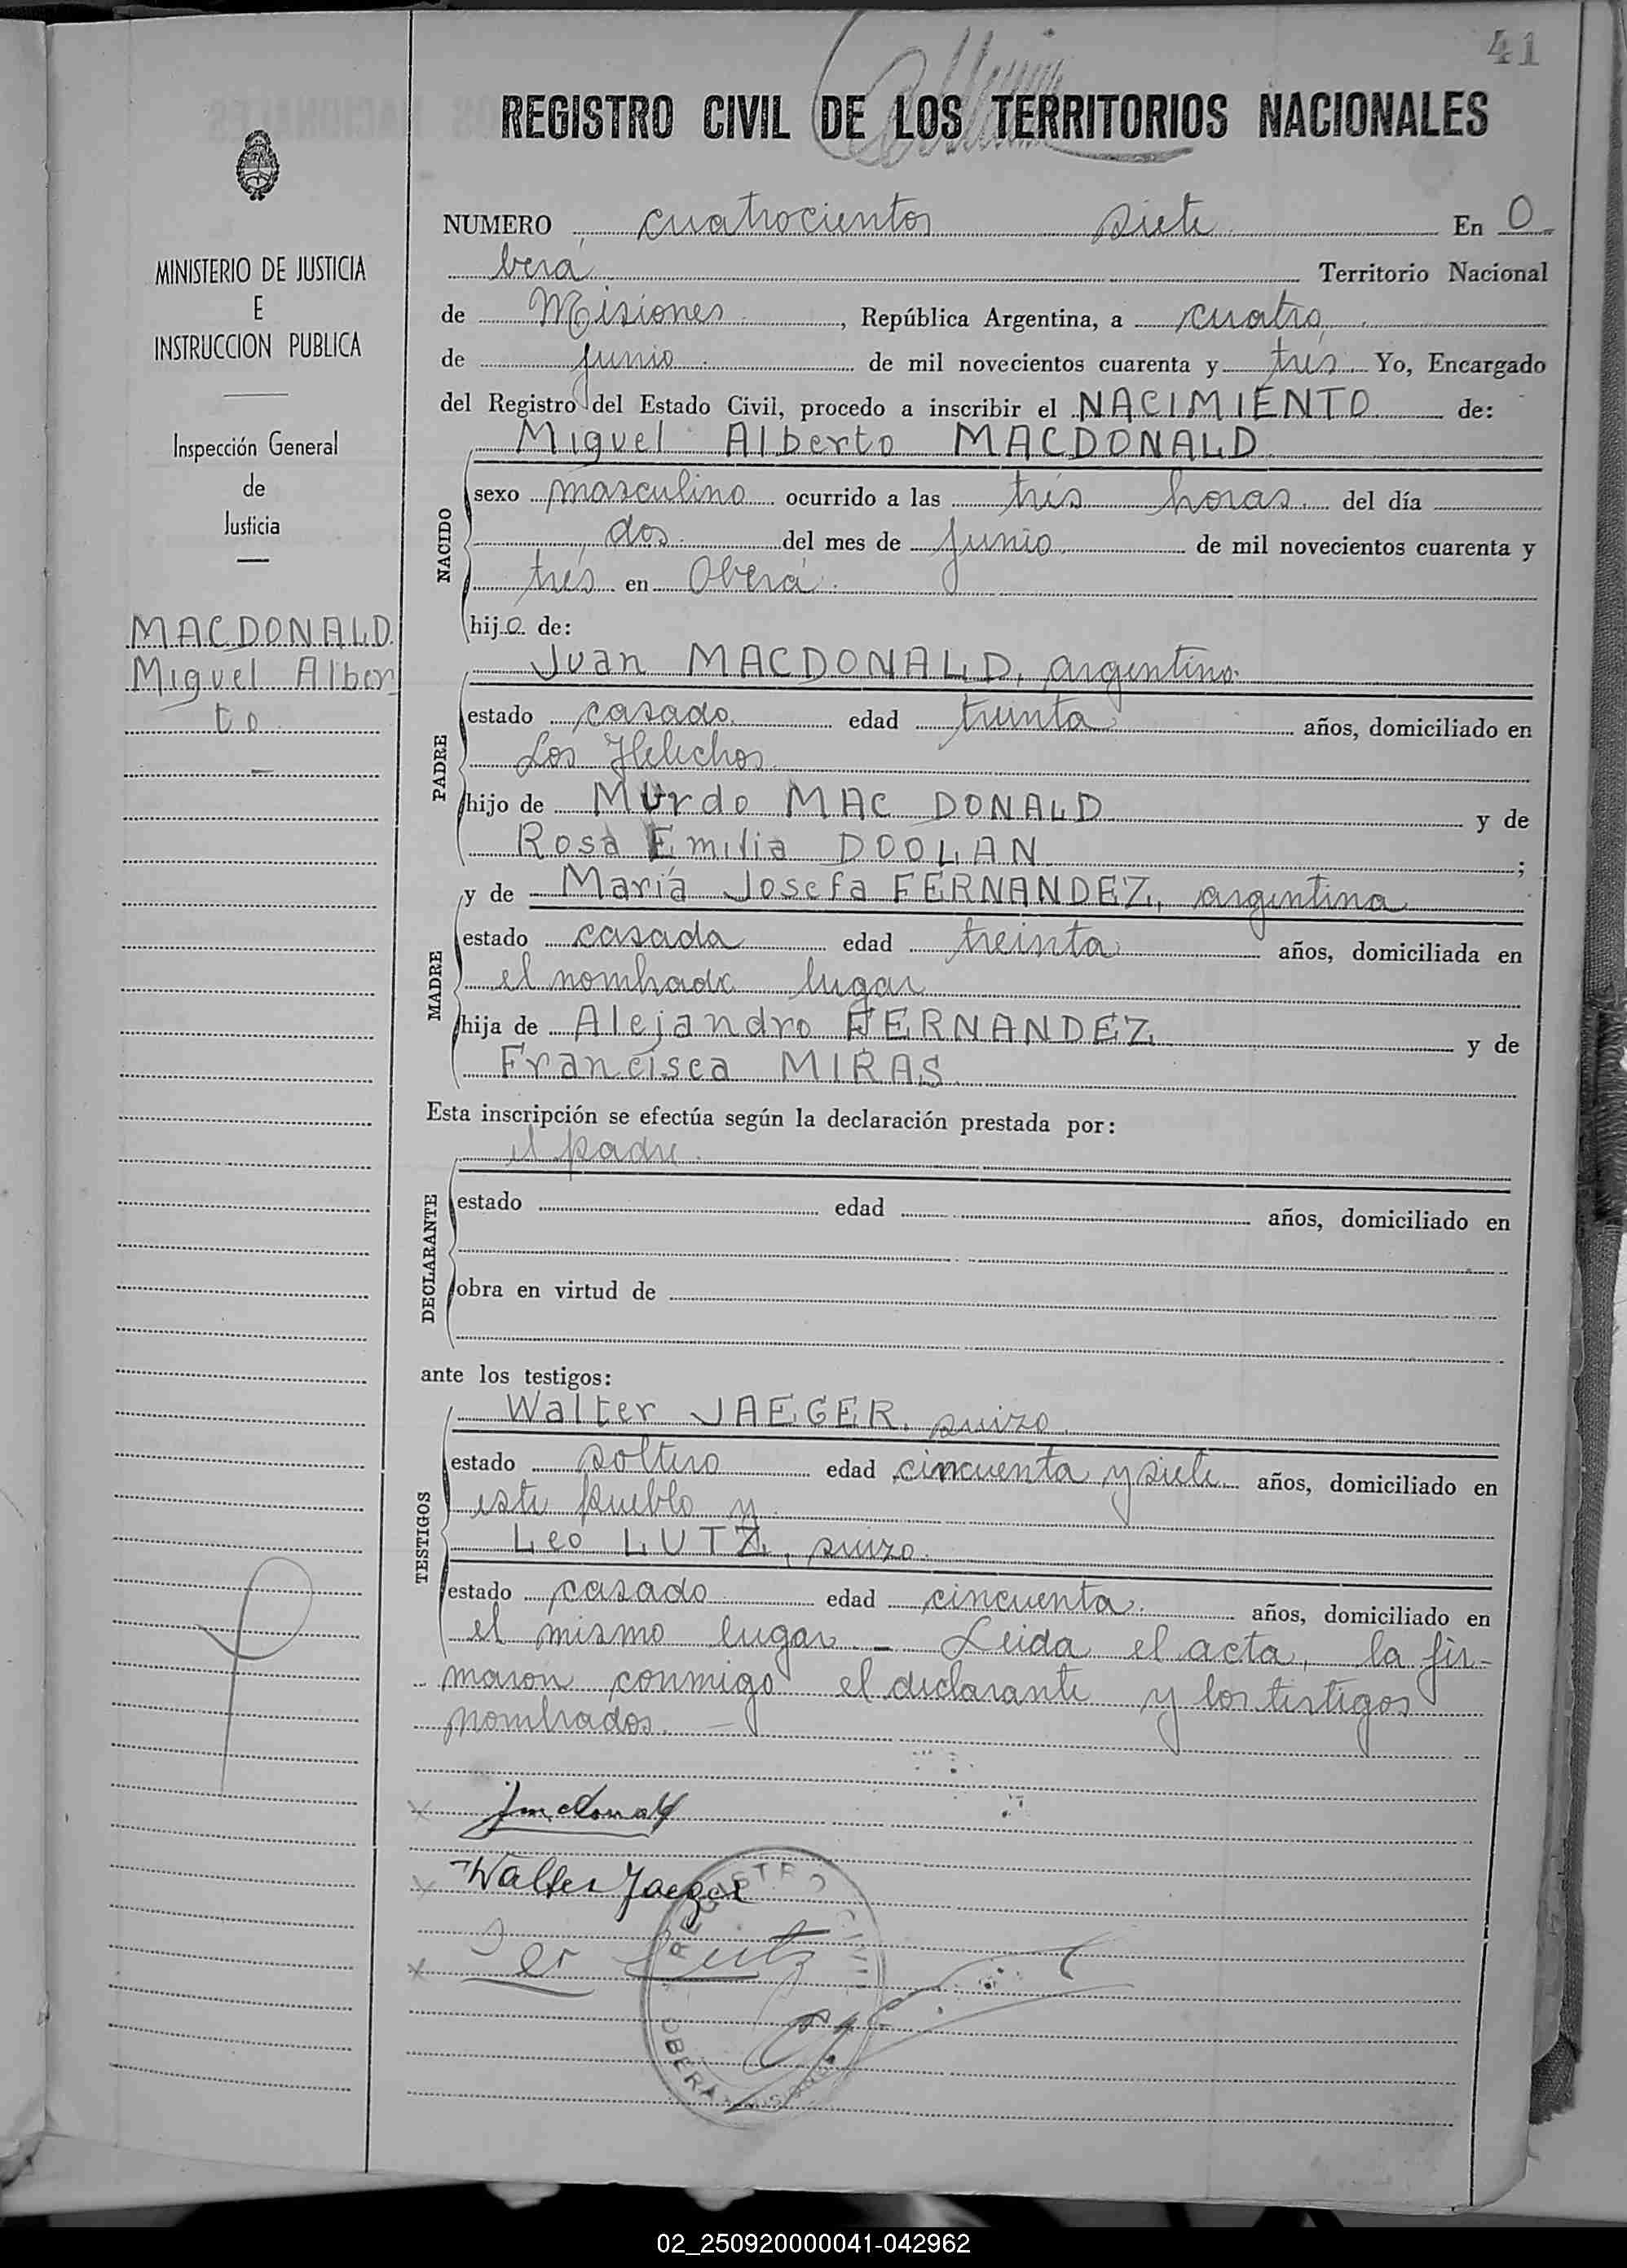 41
REGISTRO CIVIL DE LOS TERRITORIOS NACIONALES
MINISTERIO DE JUSTICIA
E
INSTRUCCION PUBLICA
Inspección General
de
Justicia
MACDONALD.
Miguel Alber
to
NUMERO cuatrocientos siete En O
berá Territorio Nacional
de Misiones, República Argentina, a cuatro
de junio de mil novecientos cuarenta y tres. Yo, Encargado
del Registro del Estado Civil, procedo a inscribir el NACIMIENTO de:
Miguel Alberto MACDONALD
NACIDO
sexo masculino ocurrido a las tres horas. del día
dos del mes de junio de mil novecientos cuarenta y
tres en Oberá.
hijo de:
PADRE
Juan MACDONALD, argentino.
estado casado edad treinta años, domiciliado en
Los Helechos
hijo de Murdo MAC DONALD y de
Rosa Emilia DOOLAN ;
MADRE
y de María Josefa FERNANDEZ, argentina
estado casada edad treinta años, domiciliada en
el nombrado lugar
hija de Alejandro FERNANDEZ y de
Francisca MIRAS
Esta inscripción se efectúa según la declaración prestada por:
DECLARANTE
el padre.
estado edad años, domiciliado en
obra en virtud de
ante los testigos:
TESTIGOS
Walter JAEGER, suizo
estado soltero edad cincuenta y siete años, domiciliado en
este pueblo y
Leo LUTZ, suizo.
estado casado edad cincuenta años, domiciliado en
el mismo lugar. - Leida el acta, la fir-
maron conmigo el declarante y los testigos
nombrados. -
Walter Jaeger
Leo Lutz
REGISTRO CIVIL
OBERA
02_250920000041-042962